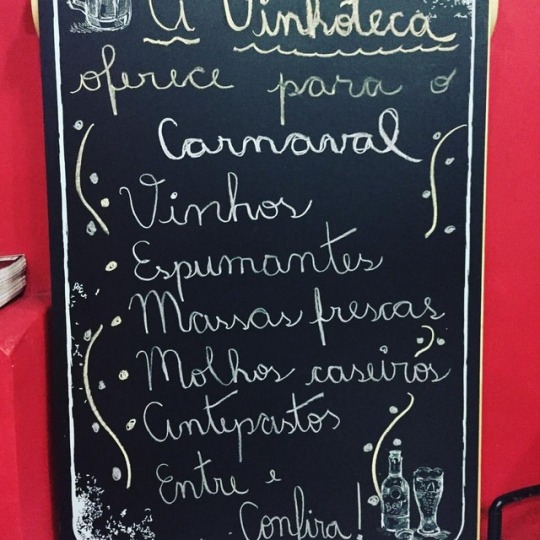 A Vinhoteca
oferece para o
Carnaval
• Vinhos
• Espumantes
• Massas frescas
• Molhos caseiros
• Antepastos
Entre e
Confira!